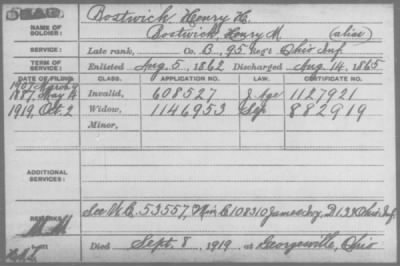 DEAD
NAME OF SOLDIER: Bostwick, Henry H.
Bostwick, Henry M. (alias)
SERVICE: Late rank, Co. B, 95 Reg't Ohio Inf.
TERM OF SERVICE: Enlisted Aug. 5, 1862 Discharged Aug. 14, 1865
DATE OF FILING. CLASS. APPLICATION NO. LAW. CERTIFICATE NO.
1907 March
1887, May Invalid, 608527 Age 1127921
1919, Oct. 2 Widow, 1146953 882919
Minor,
ADDITIONAL SERVICES:
REMARKS See W.C. 535577 C 108310 James D 13 Ohio Inf.
Died Sept. 8, 1919 at Georgesville, Ohio